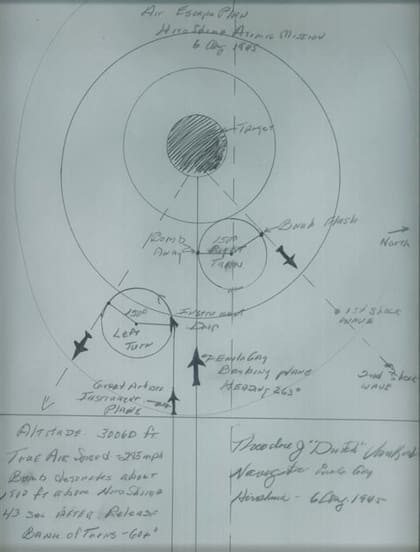 Air Escape Plan
Hiroshima Atomic Mission
6 Aug 1945
Target
Bomb Flash
Bomb
Away
150°
Right
Turn
North
1st Shock
Wave
2nd Shock
Wave
150°
Left
Turn
Instrument
Drop
Enola Gay
Bombing Plane
Heading 263°
Great Artiste
Instrument
Plane
Altitude 30060 ft.
True Air Speed = 293 mph
Bomb Detonates about
ft above Hiroshima
43 sec After Release
Bank of Turns - 60°
Theodore J "Dutch" Van Kirk
Navigator Enola Gay
Hiroshima - 6 Aug. 1945